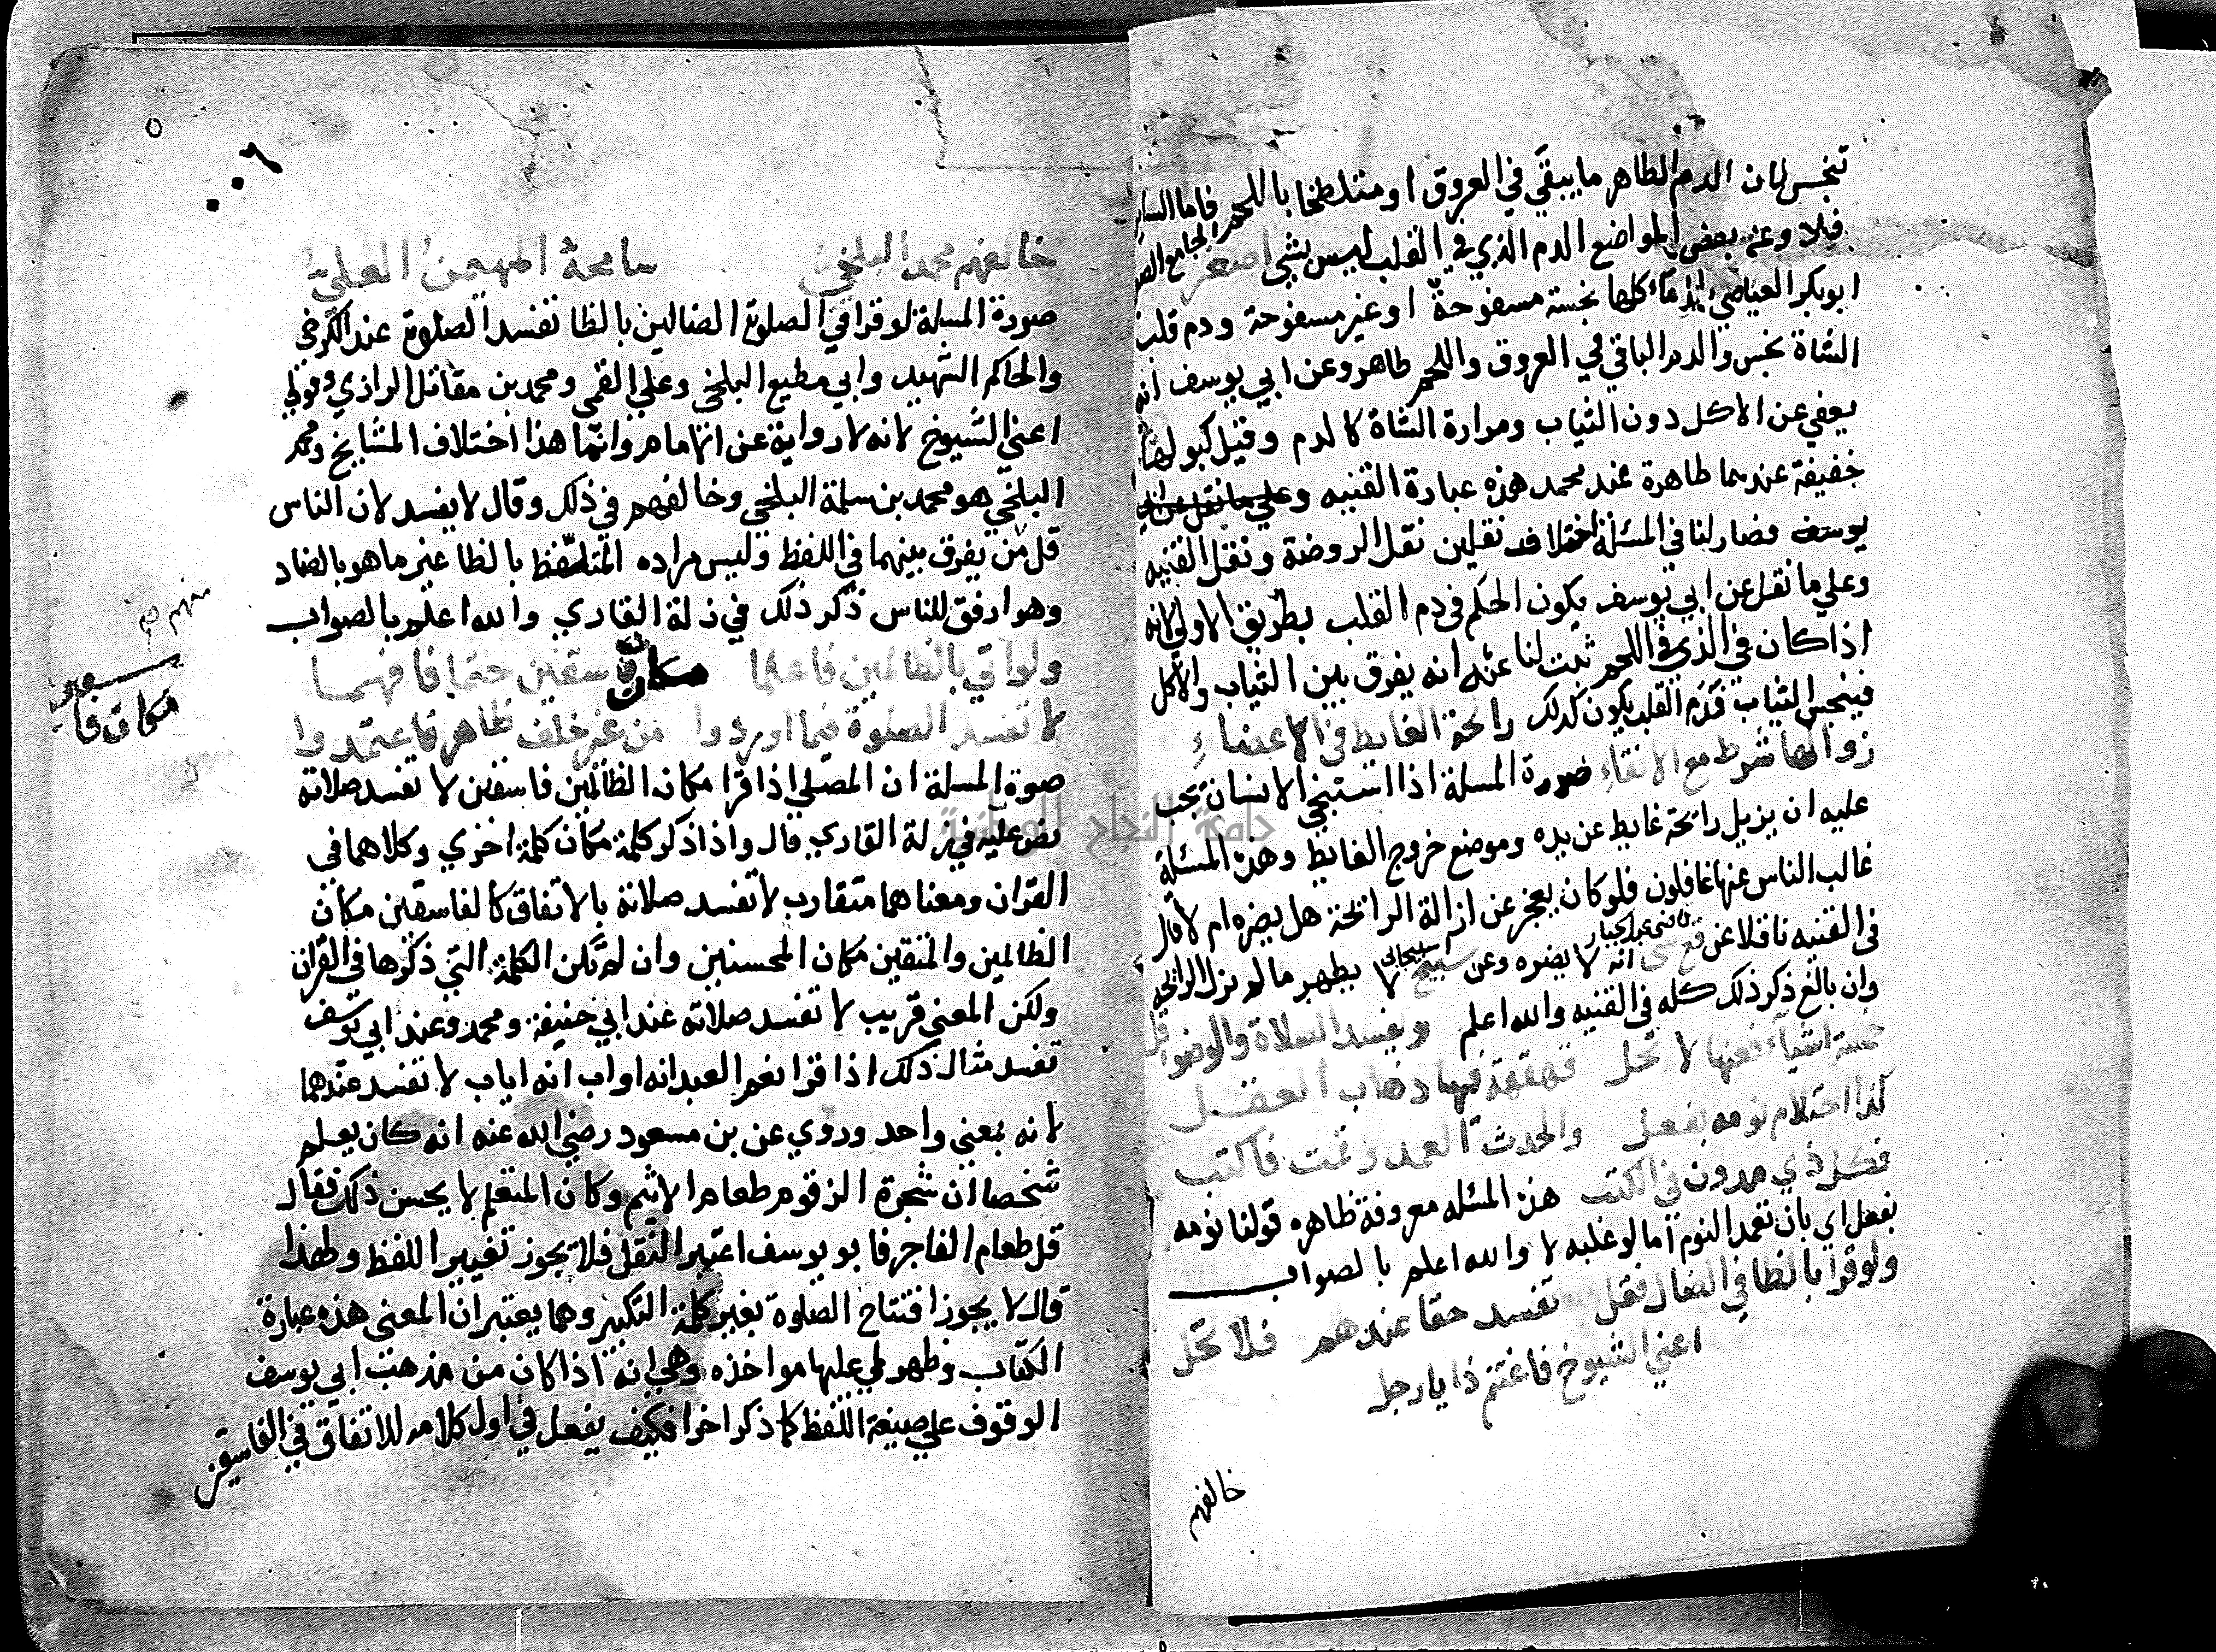 تنجس لان الدم الطاهر ما يبقي في العروق او متلطخا باللحم فاما السائل
فلا وعن بعض المواضع الدم الذي في القلب ليس بشي
ابو بكر العياضي الدماء كلها نجسة مسفوحة او غير مسفوحة ودم قلب
الشاة نجس والدم الباقي في العروق واللحم طاهر وعن ابي يوسف انه
يعفي عن الاكل دون الثياب ومرارة الشاة كالدم وقيل كبولها
خفيفة عندهما طاهرة عند محمد هذه عبارة القنيه وعلي ما نقل عن ابي
يوسف فصار لنا في المسئلة اختلاف نقلين نقل الروضة ونقل القنيه
وعلي ما نقل عن ابي يوسف يكون الحكم في دم القلب بطريق الاولي لانه
اذا كان في الذي في اللحم ثبت لنا عنه انه يفرق بين الثياب والاكل
فينجس الثياب فدم القلب يكون كذلك رائحة الغايط في الاعضاء
زوالها شرط مع الانقاء صورة المسلة اذا استنجي الانسان يجب
عليه ان يزيل رائحة غايط عن يده وموضع خروج الغايط وهذه المسئلة
غالب الناس عنها غافلون فلو كان يعجز عن ازالة الرائحة هل يضره ام لا قال
في القنيه ناقلا عن قع قاضي عبد الجبار انه لا يضره وعن لا يطهر ما لم يزل الرائحة
وان بالغ ذكر ذلك كله في القنيه والله اعلم ويفسد الصلاة والوضوء قل
خمسة اشياء فعنها لا تحل قهقهة فيها وذهاب العقل
كذا احتلام نومه بفعل والحدث العمد فاكتب
فكل ذي مدون في الكتب هذه المسئله معروفة ظاهره قولنا نومه
بفعل اي بان تعمد النوم اما لو غلبه لا والله اعلم بالصواب
ولو قرا بالظا في الضال فقل تفسد حقا عندهم فلا تحل
اعني الشيوخ فاغتنم ذا يا رجل
خالفهم
خالفهم محمد البلخي سامحة المهيمن العلي
صورة المسلة لو قرا في الصلوة الضالين بالظا تفسد الصلوة عند الكرخي
والحاكم الشهيد وابي مطيع البلخي وعلي القمي ومحمد بن مقاتل الرازي وقولي
اعني الشيوخ لانه لا رواية عن امامام وانما هذا اختلاف المشايخ ومحمد
البلخي هو محمد بن سلمة البلخي وخالفهم في ذلك وقال لا يفسد لان الناس
قل من يفرق بينهما في اللفظ وليس مراده المتلفظ بالظا غير ما هو بالضاد
وهو ارفق للناس ذكر ذلك في زلة القاري والله اعلم بالصواب
ولو اتي بالظالمين فاعلما مكان فاسقين حتما فافهما
لا تفسد الصلوة فيما اوردوا من غير خلف ظاهر فاعتمدوا
صوة المسلة ان المصلي اذا قرا مكان الظالمين فاسقين لا تفسد صلاته
نص عليه في زلة القاري قال واذا ذكر كلمة مكان كلمة اخري وكلاهما في
القران ومعناهما متقارب لا تفسد صلاته بالاتفاق كالفاسقين مكان
الظالمين والمتقين مكان المحسنين وان لم تكن الكلمة التي ذكرها في القران
ولكن المعني قريب لا تفسد صلاته عند ابي حنيفة ومحمد وعند ابي يوسف
تفسد مثال ذلك اذا قرا نعم العبد انه اواب انه اياب لا تفسد عندهما
لانه بمعني واحد وروي عن بن مسعود رضي الله عنه انه كان يعلم
شخصا ان شجرة الزقوم طعام الاثيم وكان المتعلم لا يحسن ذلك فقال
قل طعام الفاجر فابو يوسف اعتبر النقل فلا يجوز تغيير اللفظ ولهذا
قال لا يجوز افتتاح الصلوة بغير كلمة التكبير وهما يعتبران المعني هذه عبارة
الكتاب وظهر لي عليها مواخذه وهي انه اذا كان من مذهب ابي يوسف
الوقوف علي صيغة اللفظ كما ذكر اخرا فكيف يفعل في اول كلامه للاتفاق في الفاسقين
مكان فا